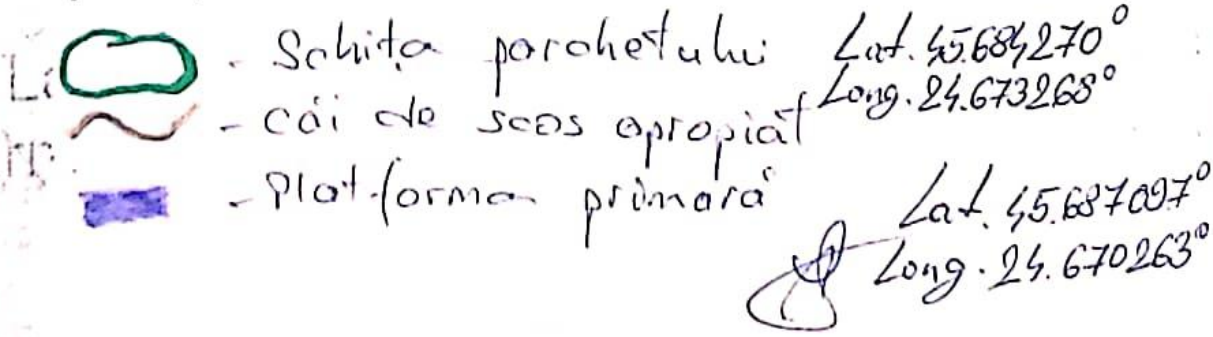 - Schița parchetului Lat. 45.684270°
Long. 24.673268°
- căi de scos apropiat
- Platforma primară
Lat. 45.687097°
Long. 24.670263°